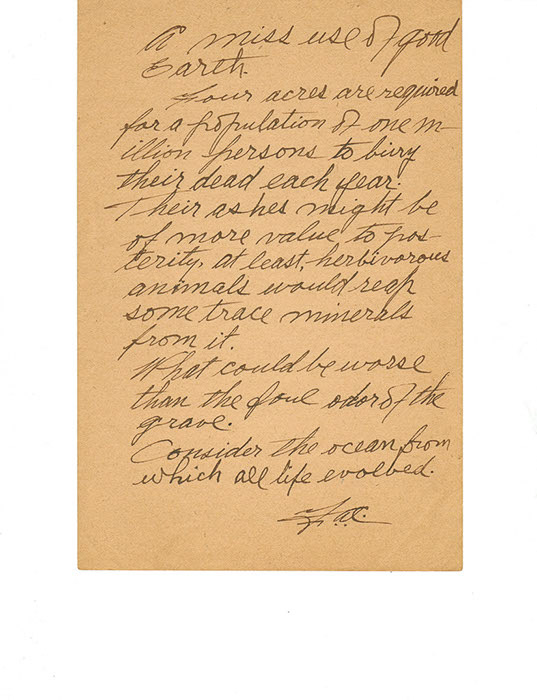 A miss use of good
Earth.
Four acres are required
for a population of one m-
illion persons to bury
their dead each year.
Their ashes might be
of more value to pos-
terity, at least, herbivorous
animals would reap
some trace minerals
from it.
What could be worse
than the foul odor of the
grave.
Consider the ocean from
which all life evolved.